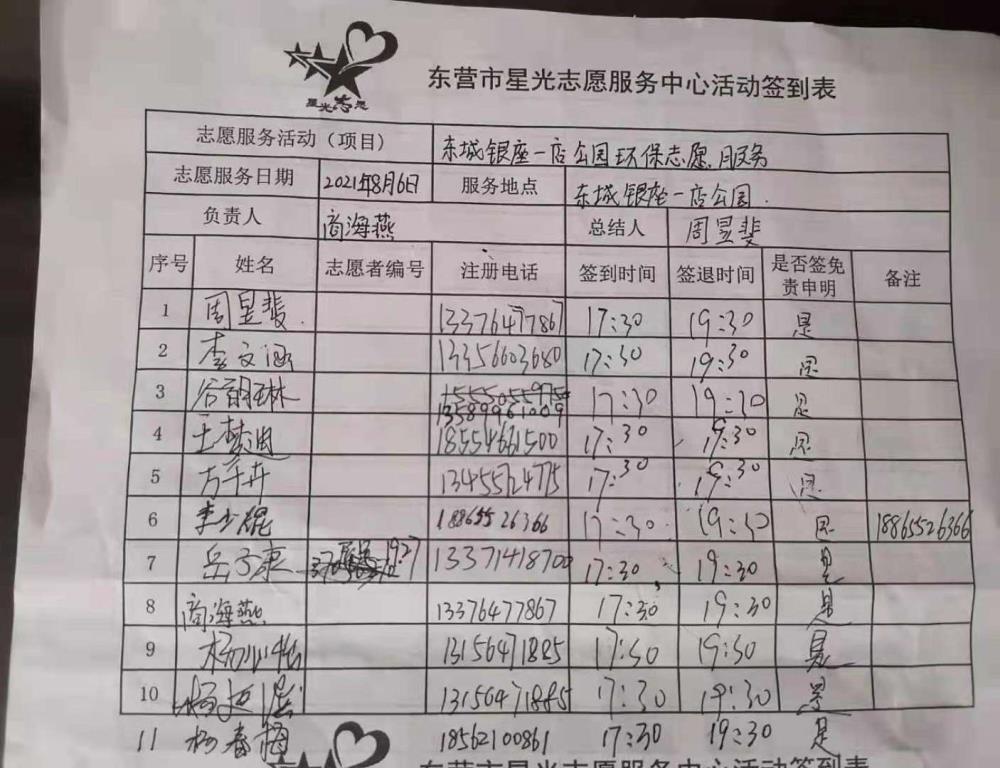 星光志愿
东营市星光志愿服务中心活动签到表
志愿服务活动（项目） 东城银座一店公园环保志愿服务
志愿服务日期 2021年8月6日 服务地点 东城银座一店公园
负责人 商海燕 总结人 周昱斐
序号 姓名 志愿者编号 注册电话 签到时间 签退时间 是否签免责申明 备注
1 周昱斐 13376477867 17:30 19:30 是
2 李文涵 13356603680 17:30 19:30 是
3 谷韵琳 13589961009 17:30 19:30 是
4 王梦迪 18554661500 17:30 19:30 是
5 方千卉 13455724775 17:30 19:30 是
6 李少焜 18865526366 17:30 19:30 是 18865526366
7 岳子康 13371418700 17:30 19:30 是
8 商海燕 13376477867 17:30 19:30 是
9 杨 13156471885 17:30 19:30 是
10 杨 13156471885 17:30 19:30 是
11 杨春梅 18562100861 17:30 19:30 是
东营市星光志愿服务中心活动签到表